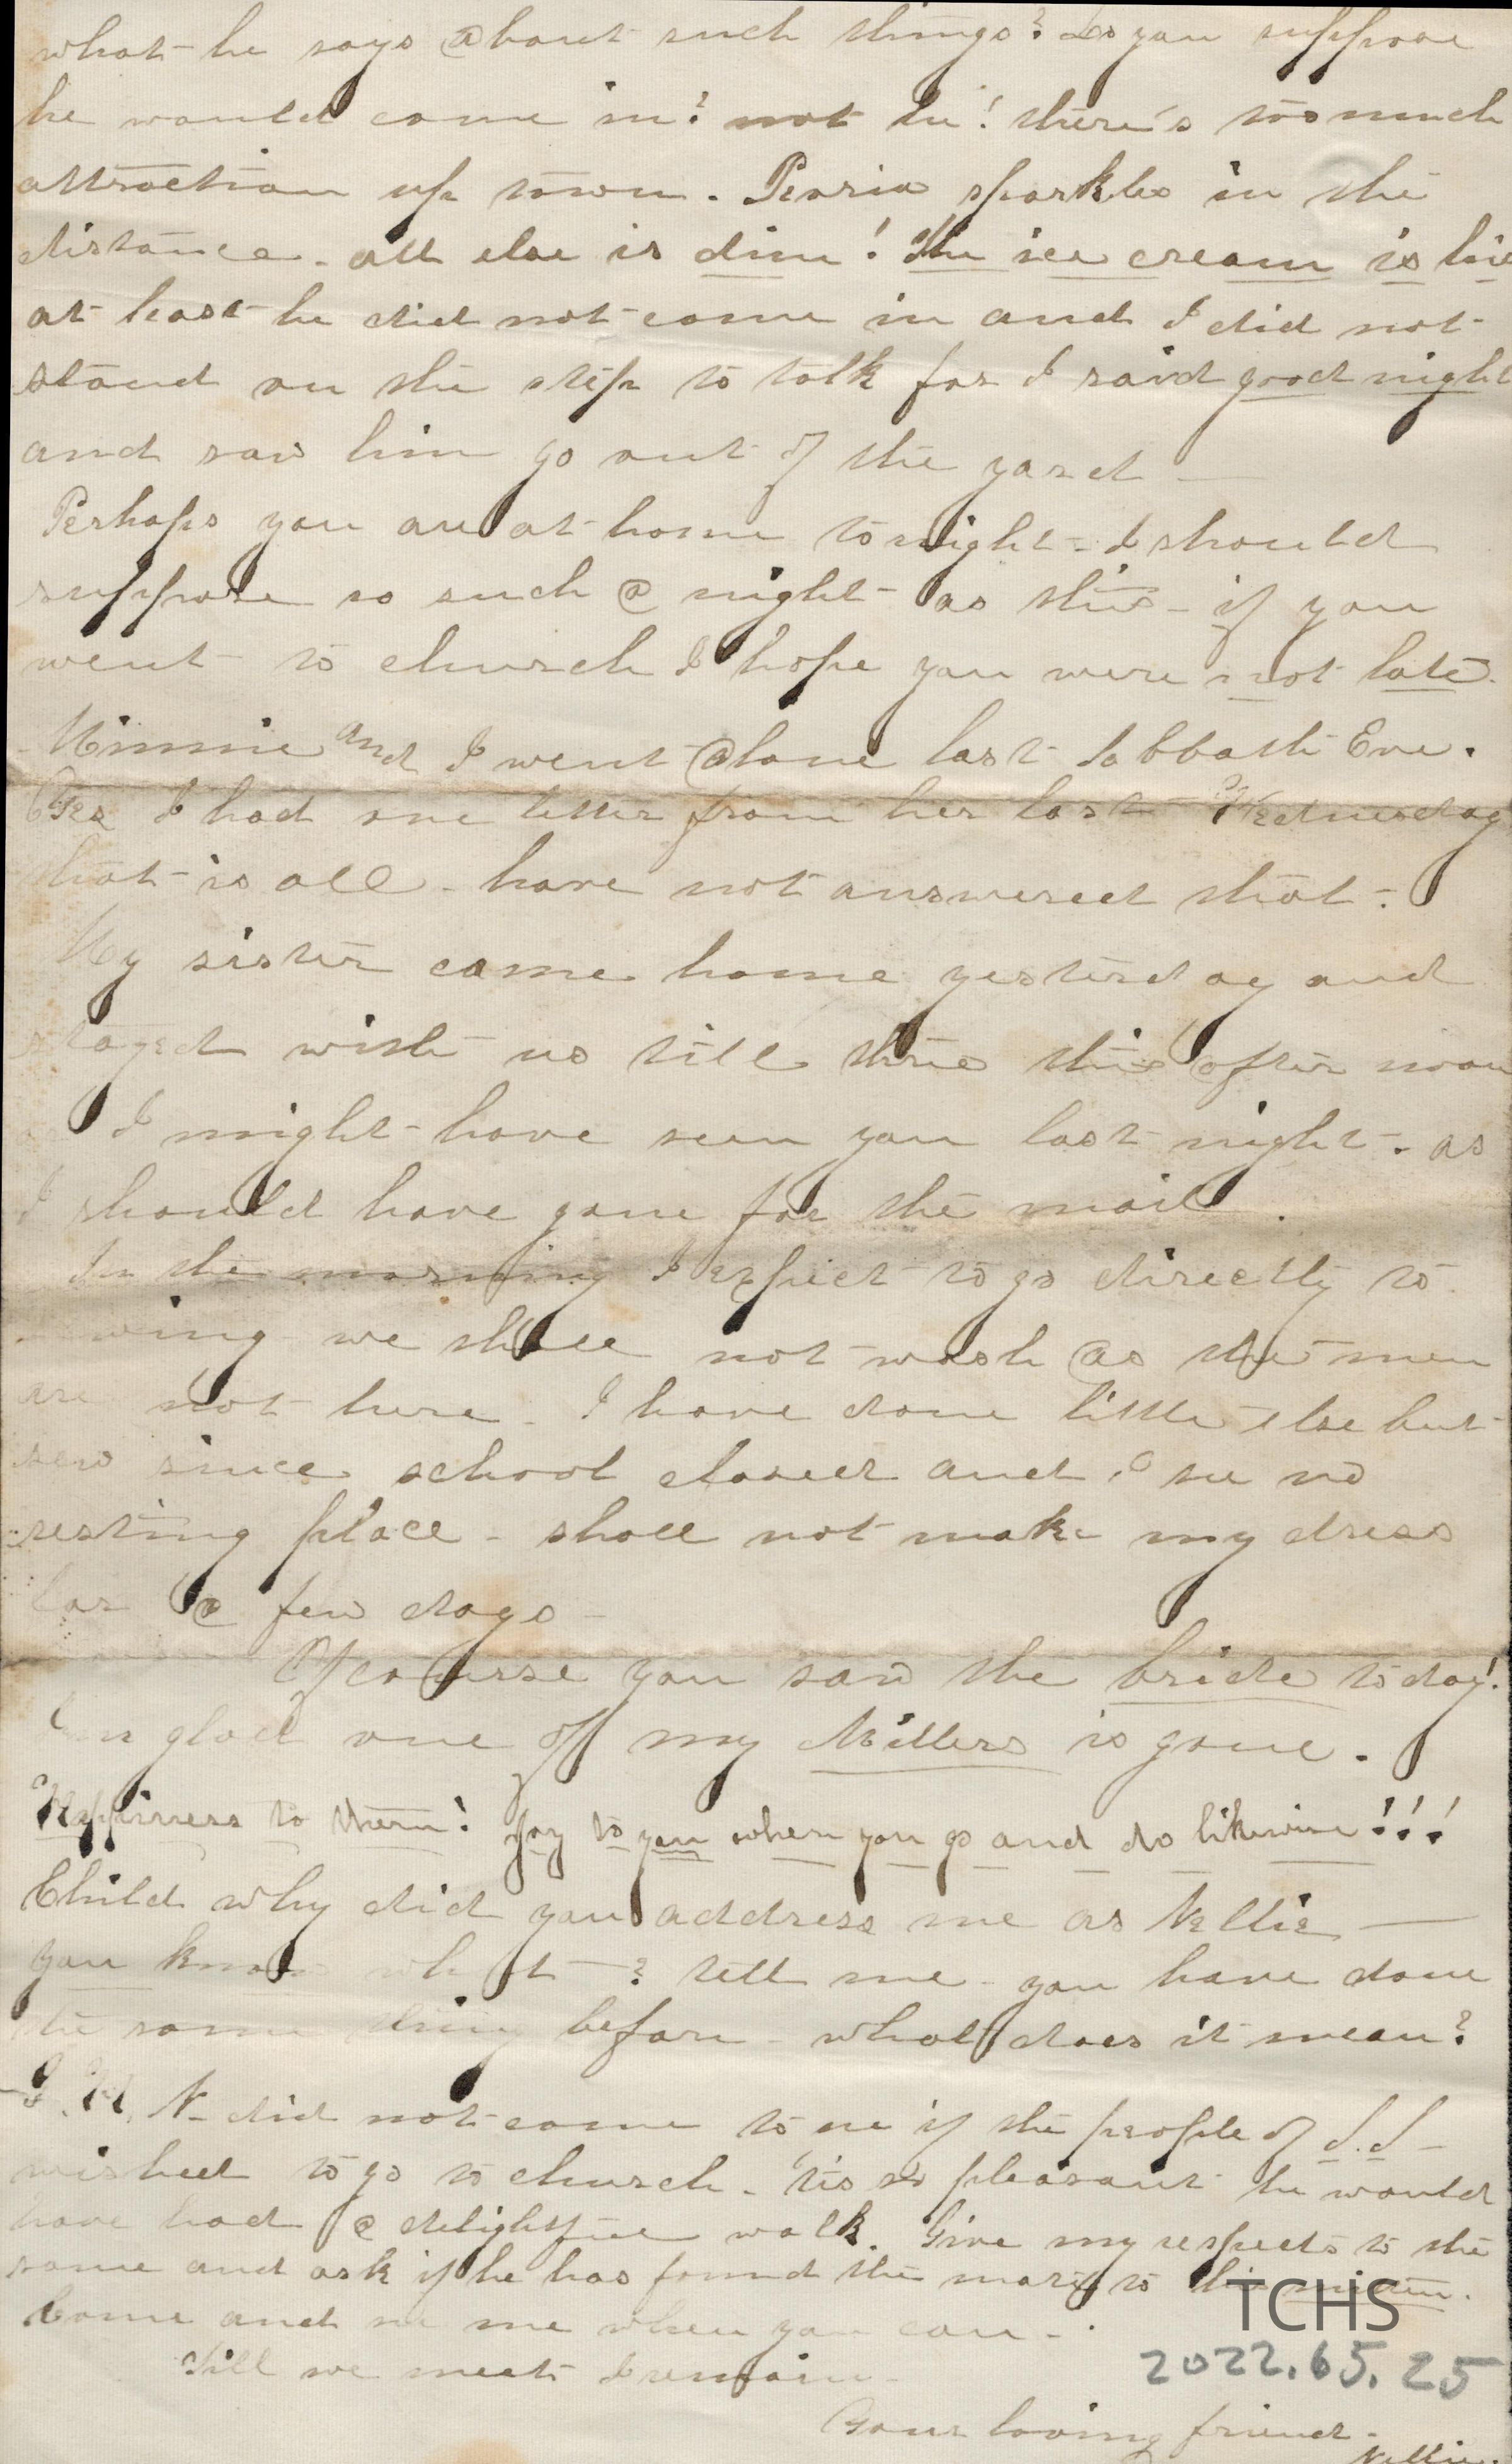 what he says about such things? Do you suppose
he would come in? not he! there's too much
attraction up town. Peoria sparkles in the
distance. all else is dim! The ice cream is
at least he did not come in and I did not
stand on the step to talk for I said good night
and saw him go out of the yard —
Perhaps you are at home tonight - I should
suppose so such a night as this - if you
went to church I hope you were not late.
Minnie and I went alone last Sabbath Eve.
Yes I had one letter from her last Wednesday
that is all - have not answered that -
My sister came home yesterday and
stayed with us till this after noon
or I might have seen you last night. as
I should have gone for the mail.
In the morning I expect to go directly to
sewing we shall not wash as the men
are not here - I have done little else but
sew since school closed and I see no
resting place - shall not make my dress
for a few days -
Of course you saw the bride today!
I'm glad one of my Millers is gone.
Happiness to them! Joy to you when you go and do likewise!!!
Child why did you address me as Nellie —
you know what —? tell me - you have done
the same thing before - what does it mean?
N - did not come to see if the people of S.S -
wished to go to church - 'tis so pleasant he would
have had a delightful walk. Give my respects to the
same and ask if he has found the mate to his mitten.
Come and see me when you can -
Till we meet I remain -
Your loving friend -
Nellie
TCHS
2022.65.25